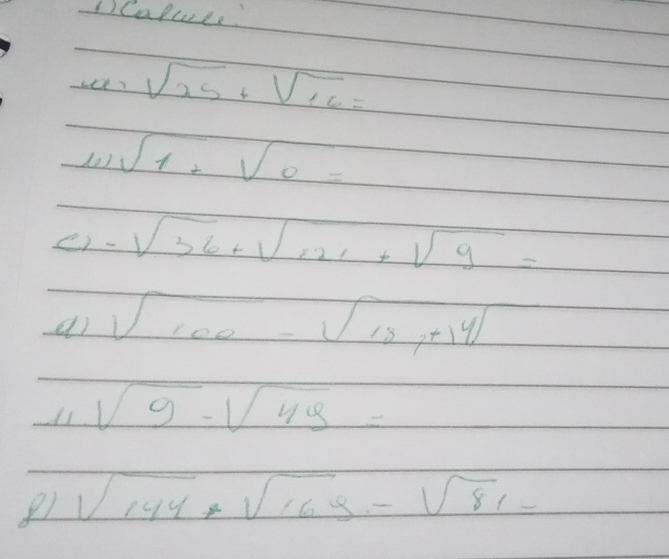 1) Calcule:
a) √25 + √16 =
b) √1 + √0 =
c) - √36 + √121 + √9 =
d) √100 -
√9 - √49 =
f) √144 + √169 - √81 =